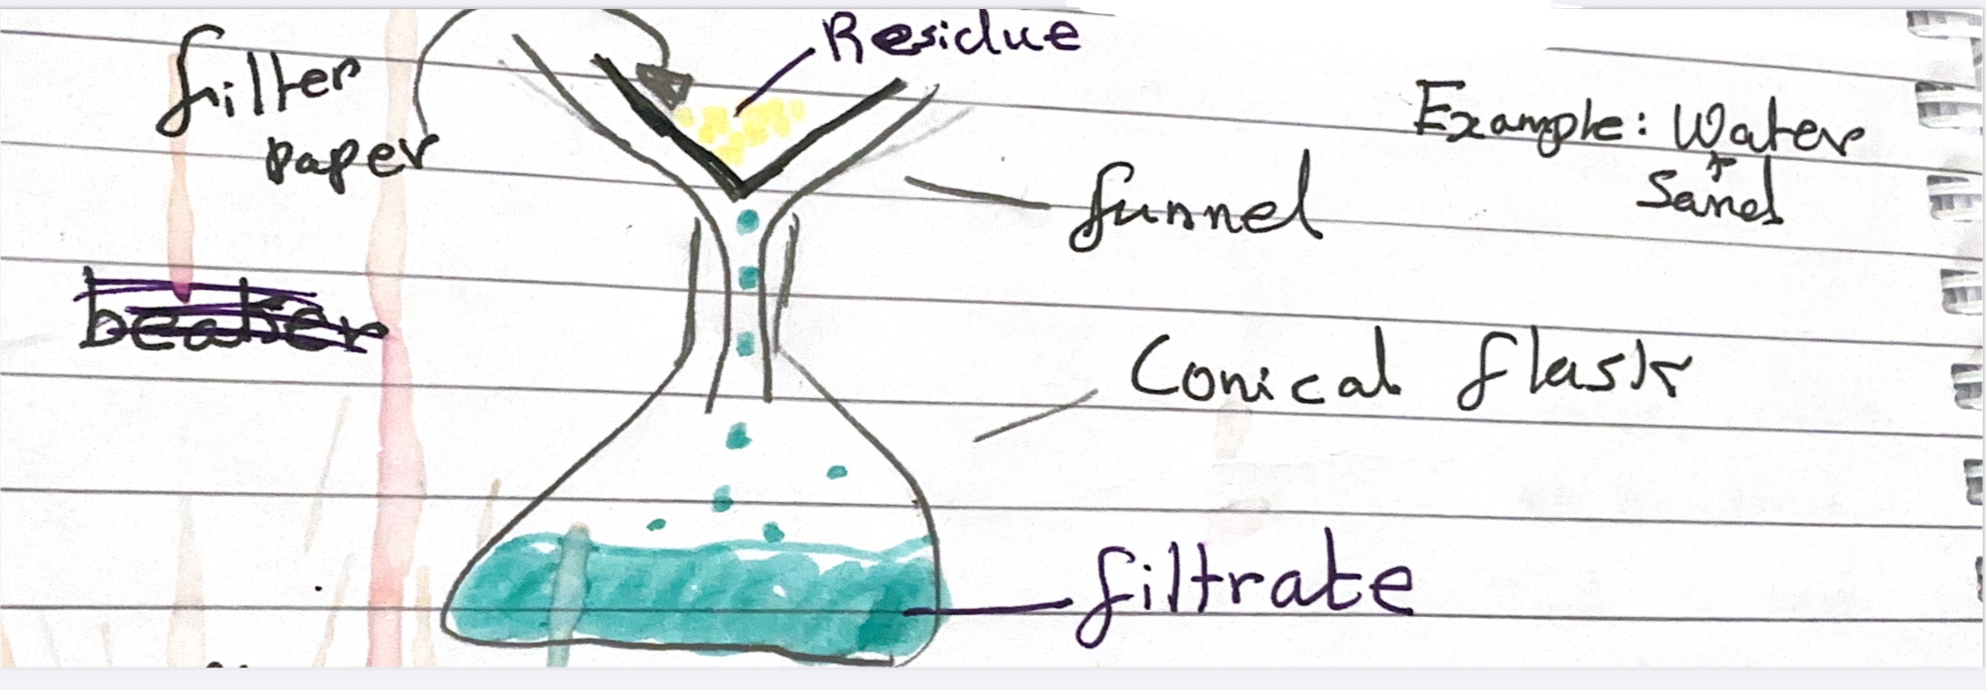 Residue
filter
paper
Example: Water
+
Sand
funnel
beaker
Conical flask
filtrate